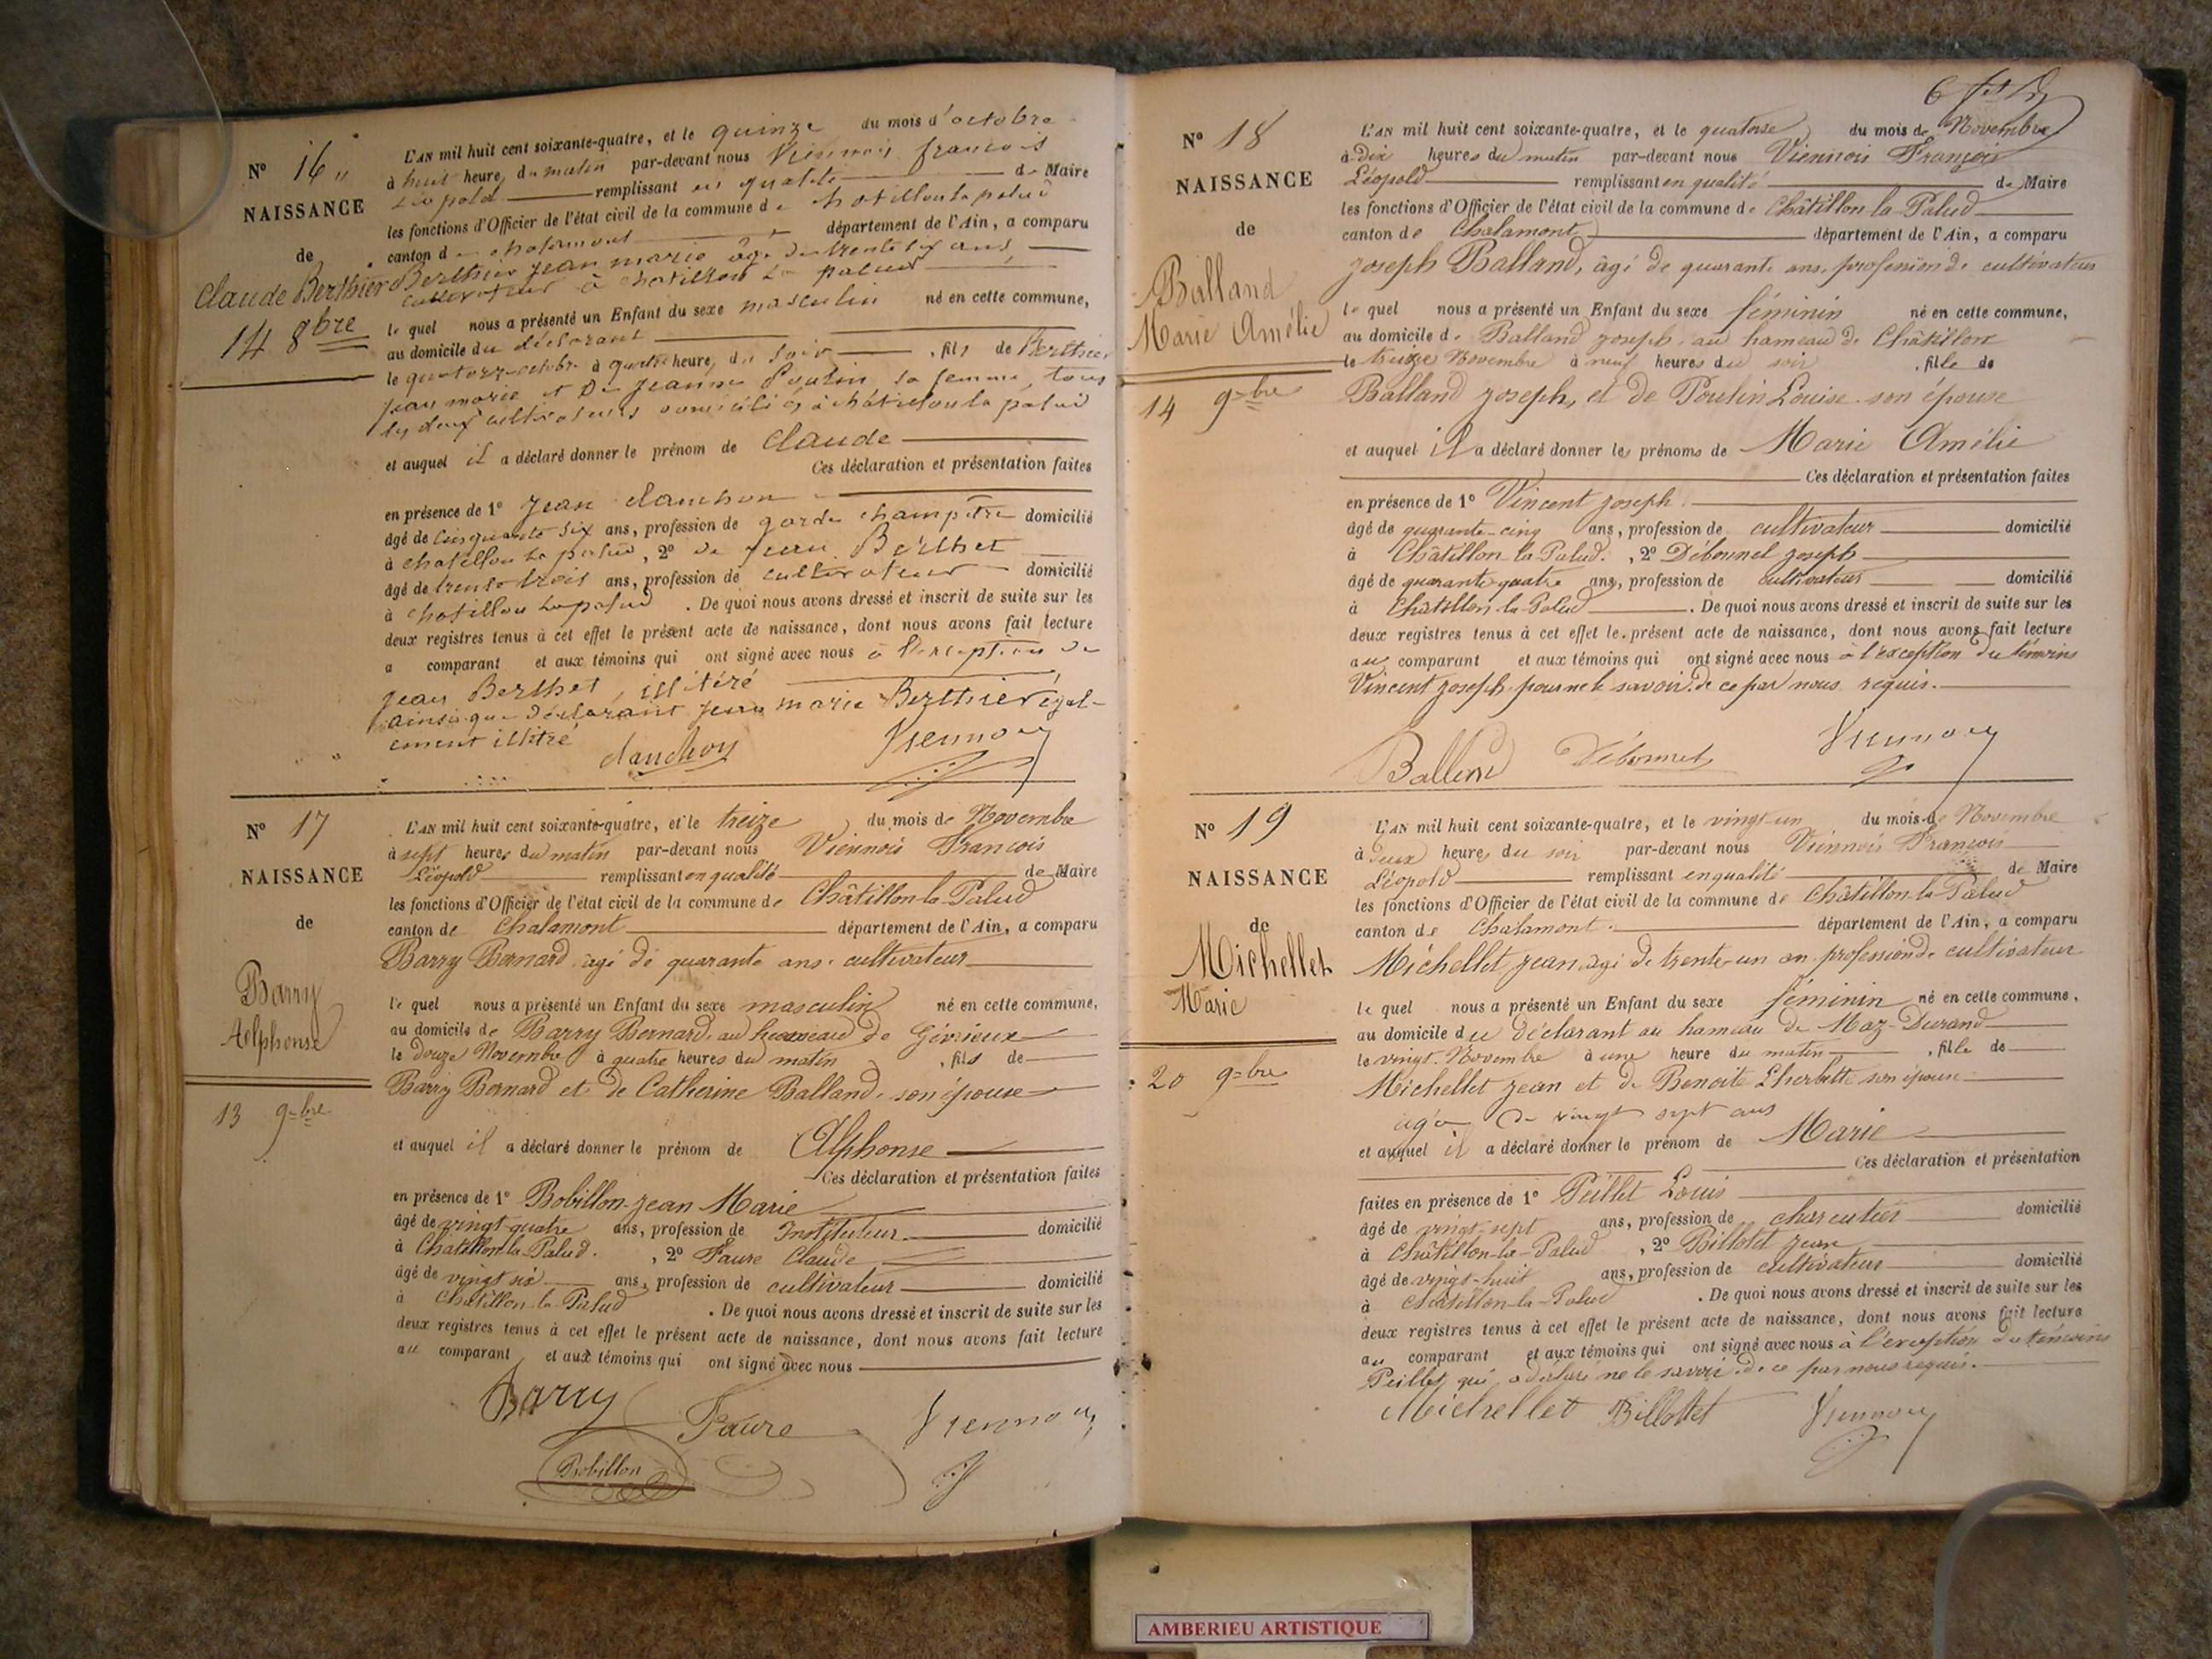 N° 16
NAISSANCE
de
Claude Berthier
14 8bre
L'AN mil huit cent soixante-quatre, et le quinze du mois d'octobre
à huit heure, du matin par-devant nous Viennois françois
Léopold remplissant en qualité de Maire
les fonctions d'Officier de l'état civil de la commune de chatillon la palud
canton de chalamont département de l'Ain, a comparu
Berthier jean marie âgé de trente six ans,
cultivateur à chatillon la palud
le quel nous a présenté un Enfant du sexe masculin né en cette commune,
au domicile du déclarant
le quatorze octobre à quatre heure, du soir, fils de Berthier
jean marie et De jeanne Poulin sa femme, tous
les deux cultivateurs domiciliés à châtillon la palud
et auquel il a déclaré donner le prénom de Claude
Ces déclaration et présentation faites
en présence de 1° jean danchon
âgé de cinquante six ans, profession de garde champêtre domicilié
à chatillon la palud, 2° de jean Berthet
âgé de trente trois ans, profession de cultivateur domicilié
à chatillon la palud. De quoi nous avons dressé et inscrit de suite sur les
deux registres tenus à cet effet le présent acte de naissance, dont nous avons fait lecture
a comparant et aux témoins qui ont signé avec nous à l'exception de
jean Berthet, illitéré
ainsi que déclarant jean marie Berthier égal-
ement illitré
danchon Viennois
N° 17
NAISSANCE
de
Barry
Alphonse
13 9bre
L'AN mil huit cent soixante-quatre, et le treize du mois de Novembre
à sept heures du matin par-devant nous Viennois François
Léopold remplissant en qualité de Maire
les fonctions d'Officier de l'état civil de la commune de Châtillon-la-Palud
canton de Chalamont département de l'Ain, a comparu
Barry Bernard âgé de quarante ans, cultivateur
le quel nous a présenté un Enfant du sexe masculin né en cette commune,
au domicile de Barry Bernard, au hameau de Gévrieux
le douze Novembre à quatre heures du matin, fils de
Barry Bernard et de Catherine Balland, son épouse
et auquel il a déclaré donner le prénom de Alphonse
Ces déclaration et présentation faites
en présence de 1° Bobillon jean Marie
âgé de vingt quatre ans, profession de Instituteur domicilié
à Châtillon-la-Palud. , 2° Faure Claude
âgé de vingt six ans, profession de cultivateur domicilié
à Châtillon-la-Palud. De quoi nous avons dressé et inscrit de suite sur les
deux registres tenus à cet effet le présent acte de naissance, dont nous avons fait lecture
au comparant et aux témoins qui ont signé avec nous
Barry Faure Viennois
Bobillon
N° 18
NAISSANCE
de
Balland
Marie Amélie
14 9bre
L'AN mil huit cent soixante-quatre, et le quatorse du mois de Novembre
à dix heures du matin par-devant nous Viennois François
Léopold remplissant en qualité de Maire
les fonctions d'Officier de l'état civil de la commune de Châtillon-la-Palud
canton de Chalamont département de l'Ain, a comparu
joseph Balland, âgé de quarante ans, profession de cultivateur
le quel nous a présenté un Enfant du sexe féminin né en cette commune,
au domicile de Balland joseph au hameau de Châtillon
le treize Novembre à neuf heures du soir, fille de
Balland joseph, et de Poulin Louise son épouse
et auquel il a déclaré donner les prénoms de Marie Amélie
Ces déclaration et présentation faites
en présence de 1° Vincent joseph
âgé de quarante-cinq ans, profession de cultivateur domicilié
à Châtillon-la-Palud. , 2° Débonnel joseph
âgé de quarante quatre ans, profession de cultivateur domicilié
à Châtillon-la-Palud. De quoi nous avons dressé et inscrit de suite sur les
deux registres tenus à cet effet le présent acte de naissance, dont nous avons fait lecture
au comparant et aux témoins qui ont signé avec nous à l'exception du témoins
Vincent joseph pour ne le savoir de ce par nous requis.
Balland Débonnel Viennois
N° 19
NAISSANCE
de
Michellet
Marie
20 9bre
L'AN mil huit cent soixante-quatre, et le vingt-un du mois de Novembre
à deux heures du soir par-devant nous Viennois François
Léopold remplissant en qualité de Maire
les fonctions d'Officier de l'état civil de la commune de Châtillon-la-Palud
canton de Chalamont département de l'Ain, a comparu
Michellet jean âgé de trente-un an profession de cultivateur
le quel nous a présenté un Enfant du sexe féminin né en cette commune,
au domicile du déclarant au hameau de Maz-Durand
le vingt Novembre à une heure du matin, fille de
Michellet jean et de Benoite Lherbette son épouse
agée de vingt sept ans
et auquel il a déclaré donner le prénom de Marie
Ces déclaration et présentation
faites en présence de 1° Peillet Louis
âgé de vingt-sept ans, profession de charcutier domicilié
à Châtillon-la-Palud , 2° Billotet jean
âgé de vingt-huit ans, profession de cultivateur domicilié
à Châtillon-la-Palud. De quoi nous avons dressé et inscrit de suite sur les
deux registres tenus à cet effet le présent acte de naissance, dont nous avons fait lecture
au comparant et aux témoins qui ont signé avec nous à l'exception du témoins
Peillet qui a déclaré ne le savoir de ce par nous requis.
Michellet Billottet Viennois
AMBERIEU ARTISTIQUE